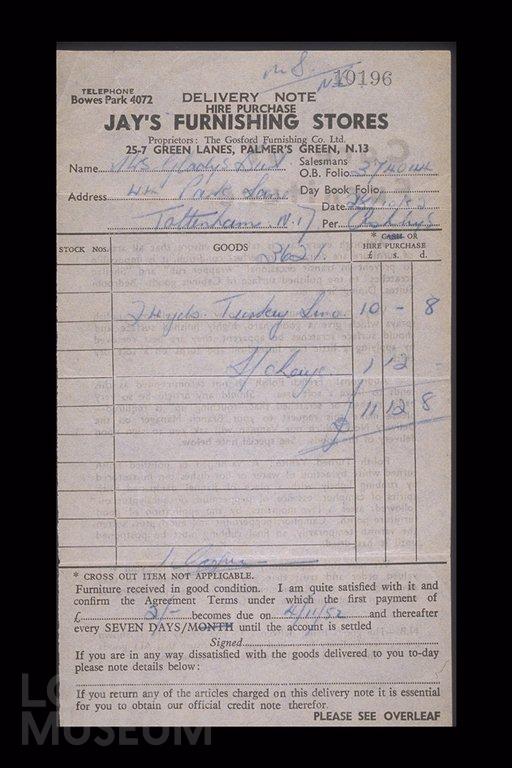 10196
TELEPHONE
Bowes Park 4072
DELIVERY NOTE
HIRE PURCHASE
JAY'S FURNISHING STORES
Proprietors: The Gosford Furnishing Co. Ltd.
25-7 GREEN LANES, PALMER'S GREEN, N.13
Name Mrs
Salesmans
O.B. Folio
Address Park Lane
Day Book Folio
Date
Tottenham N.17
Per
STOCK NOS. GOODS * CASH OR HIRE PURCHASE
£ s. d.
7 yds. Turkey Lino. 10 - 8
S/Charge 1 12 -
11 12 8
* CROSS OUT ITEM NOT APPLICABLE.
Furniture received in good condition. I am quite satisfied with it and
confirm the Agreement Terms under which the first payment of
£ 3/- becomes due on 4/11/52 and thereafter
every SEVEN DAYS/MONTH until the account is settled
Signed
If you are in any way dissatisfied with the goods delivered to you to-day
please note details below:
If you return any of the articles charged on this delivery note it is essential
for you to obtain our official credit note therefor.
PLEASE SEE OVERLEAF
MUSEUM